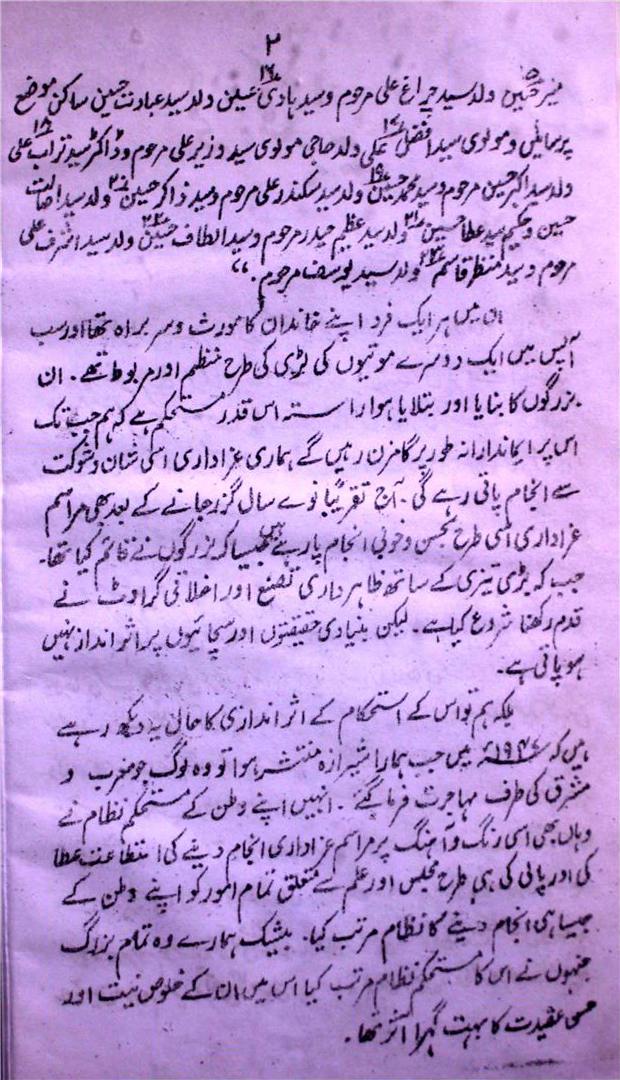 ۲
منیر حسین۱۵ ولد سید چراغ علی مرحوم و سید ہادی۱۶ علیٰن ولد سید عبادت حسین ساکن موضع
پرسمایلی و مولوی سید افضل۱۷ علی ولد حاجی مولوی سید وزیر علی مرحوم و ڈاکٹر سید تراب۱۸ علی
ولد سید اکبر حسین مرحوم و سید محمد حسین۱۹ ولد سید سکندر علی مرحوم و سید ذاکر حسین۲۰ ولد سید اصالت
حسین و حکیم سید عطا حسین۲۱ ولد سید عظیم حیدر مرحوم و سید الطاف حسین۲۲ ولد سید اشرف علی
مرحوم و سید منظر قاسم۲۳ ولد سید یوسف مرحوم۔“
ان میں ہر ایک فرد اپنے خاندان کا مورث و سربراہ تھا اور سب
آپس میں ایک دوسرے موتیوں کی لڑی کی طرح منظم اور مربوط تھے۔ ان
بزرگوں کا بنایا اور بتلایا ہوا راستہ اس قدر مستحکم ہے کہ ہم جب تک
اس پر ایماندارانہ طور پر گامزن رہیں گے ہماری عزاداری اسی شان و شوکت
سے انجام پاتی رہے گی۔ آج تقریبًا نوے سال گزر جانے کے بعد بھی مراسم
عزاداری اسی طرح بحسن و خوبی انجام پا رہے ہیں جیسا کہ بزرگوں نے قائم کیا تھا۔
جب کہ بڑی تیزی کے ساتھ ظاہر داری تصنع اور اخلاقی گراوٹ نے
قدم رکھنا شروع کیا ہے۔ لیکن بنیادی حقیقتوں اور سچائیوں پر اثر انداز نہیں
ہو پاتی ہے۔
بلکہ ہم تو اس کے استحکام کے اثر اندازی کا حال یہ دیکھ رہے
ہیں کہ ۱۹۴۷ء میں جب ہمارا شیرازہ منتشر ہوا تو وہ لوگ جو مغرب و
مشرق کی طرف مہاجرت فرما گئے۔ انہیں اپنے وطن کے مستحکم نظام نے
وہاں بھی اسی رنگ و آہنگ پر مراسم عزاداری انجام دینے کی استطاعت عطا
کی اور پانی کی ہی طرح مجلس اور علم کے متعلق تمام امور کو اپنے وطن کے
جیسا ہی انجام دینے کا نظام مرتب کیا۔ بیشک ہمارے وہ تمام بزرگ
جنہوں نے اس کا مستحکم نظام مرتب کیا اس میں ان کے خلوص نیت اور
حسن عقیدت کا بہت گہرا اثر تھا۔